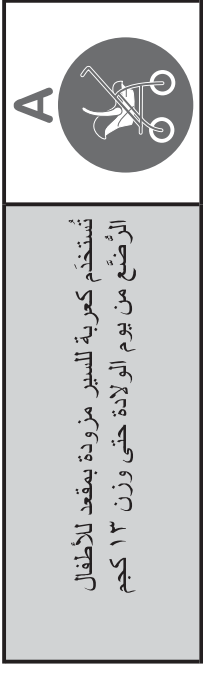 A
تُستخدَم كعربة للسير مزودة بمقعد للأطفال
الرُّضَّع من يوم الولادة حتى وزن ١٣ كجم